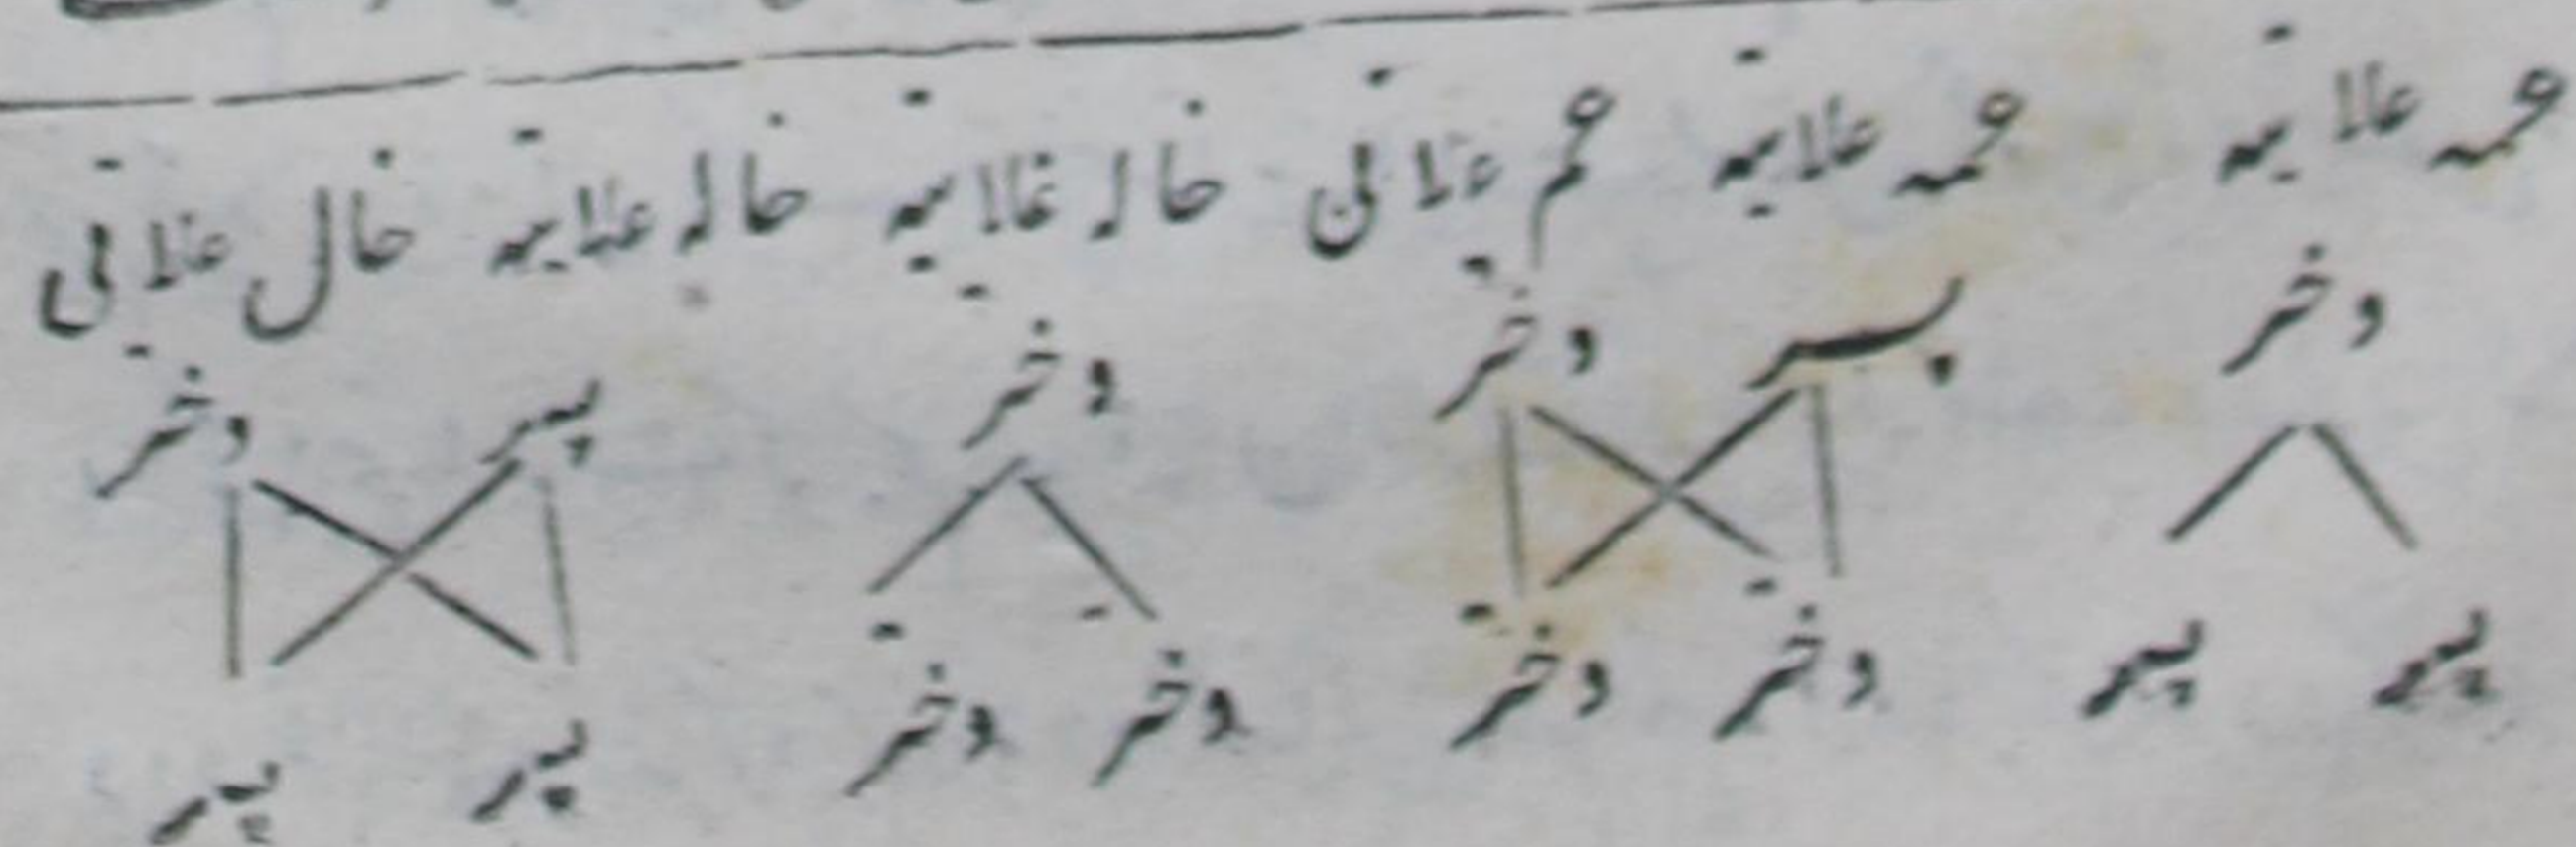 عمہ علاتیہ عمہ علاتیہ عم علاتی خالہ علاتیہ خالہ علاتیہ خال علاتی
دختر پسر دختر دختر پسر دختر
پسر پسر دختر دختر دختر دختر پسر پسر